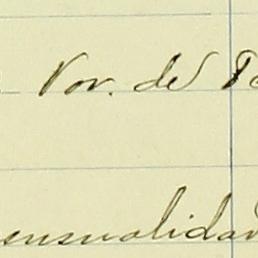 Nov. de
ensualidad